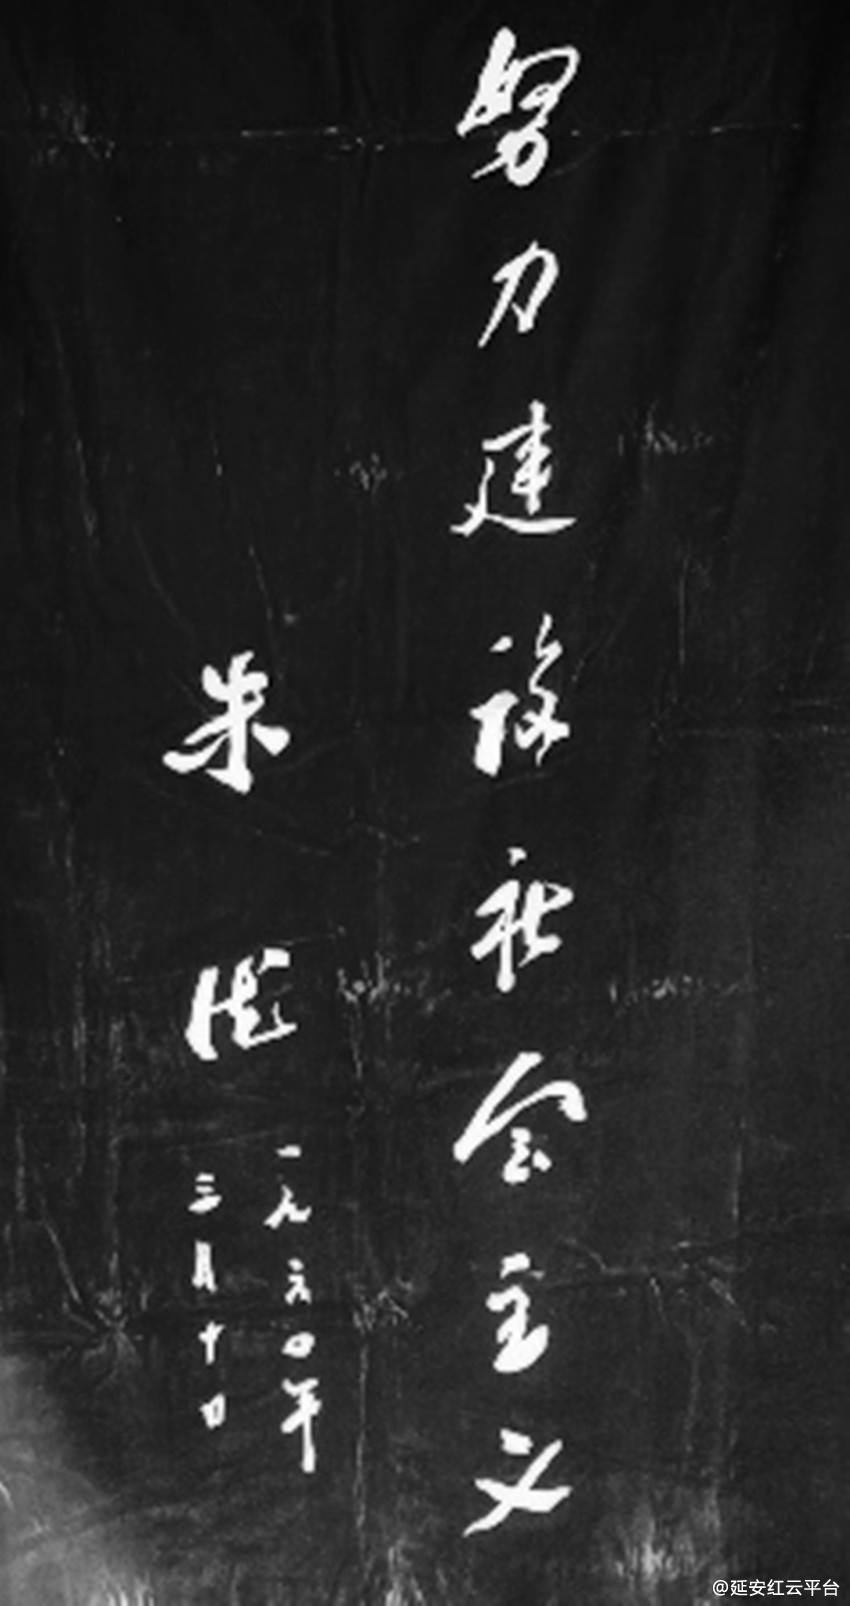 努力建设社会主义
朱德
一九六〇年
三月十日
@延安红云平台